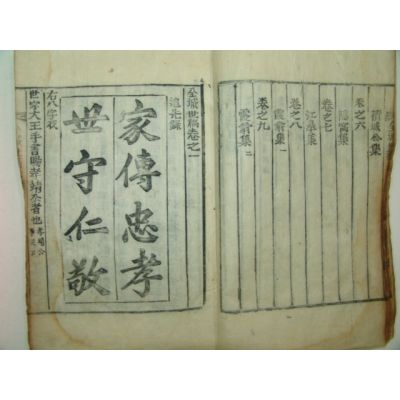 積城公集
卷之六
隱窩集
卷之七
江皐集
卷之八
霞集 一
卷之九
霞集 二
全城世稿卷之一
追先錄
家傳忠孝
世守仁敬
右八字我
世宗大王手書賜孝靖公者也